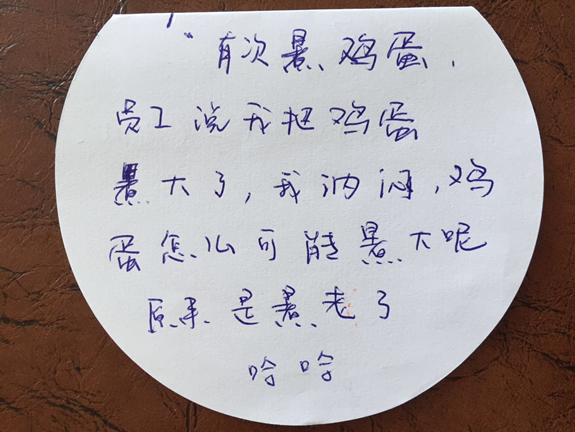 有次煮鸡蛋,
员工说我把鸡蛋
煮大了,我讷闷,鸡
蛋怎么可能煮大呢
原来是煮老了
哈哈